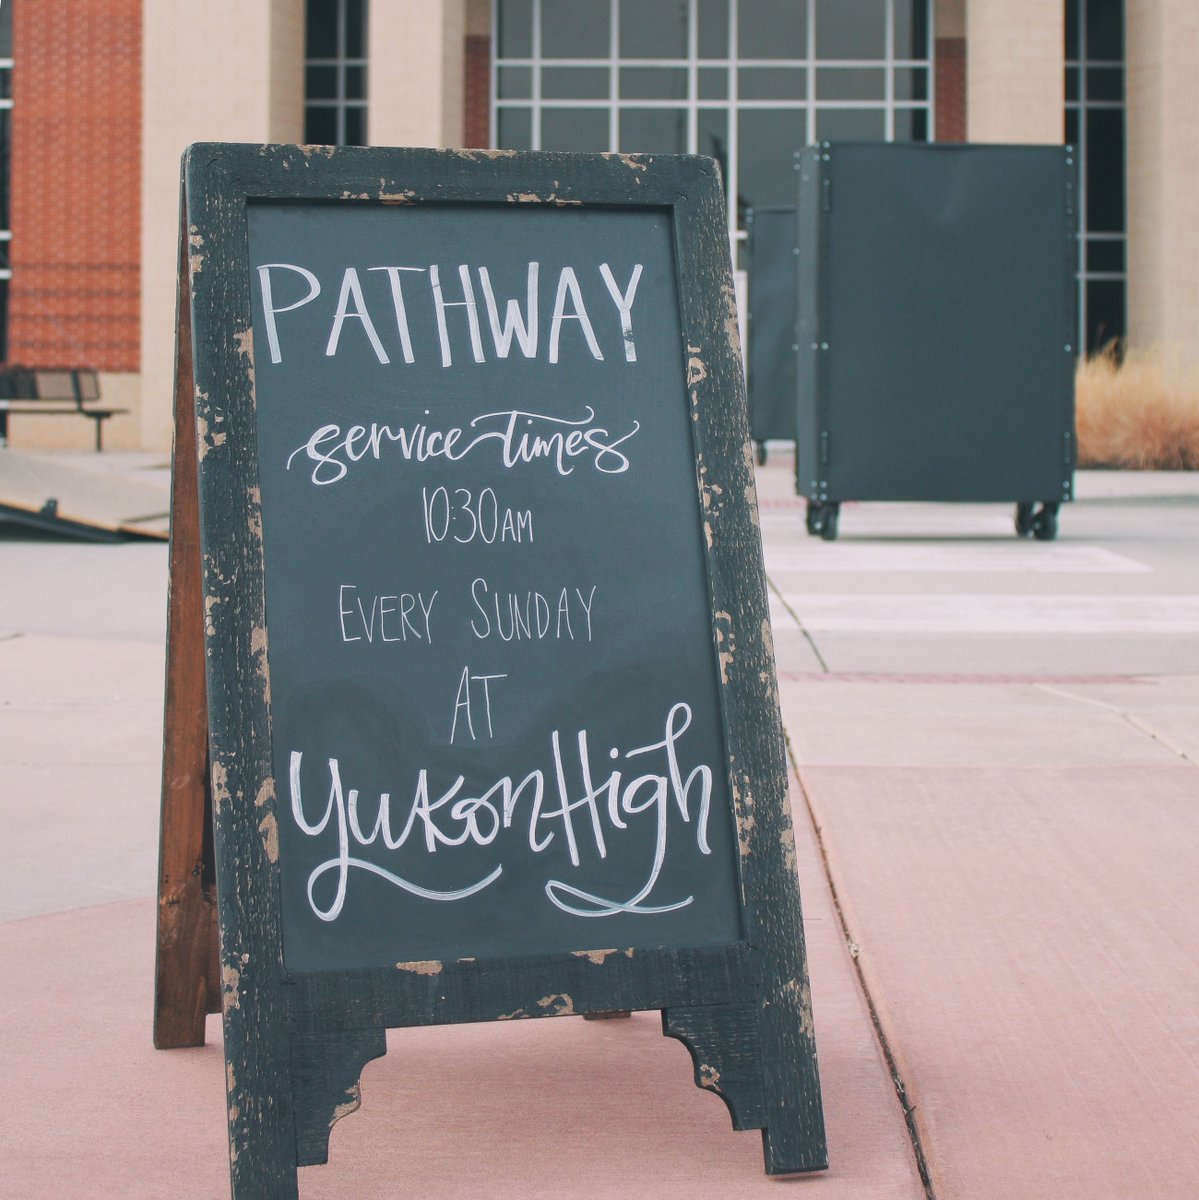 PATHWAY
service times
10:30AM
EVERY SUNDAY
AT
Yukon High